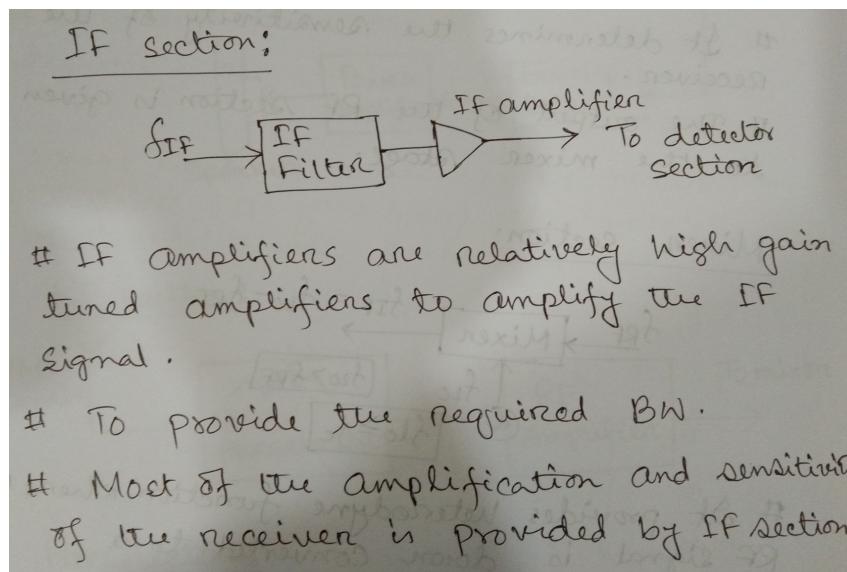 IF section:
IF amplifier
fIF
IF
Filter
To detector
section
# IF amplifiers are relatively high gain
tuned amplifiers to amplify the IF
signal.
# To provide the required BW.
# Most of the amplification and sensitivi
of the receiver is provided by IF section